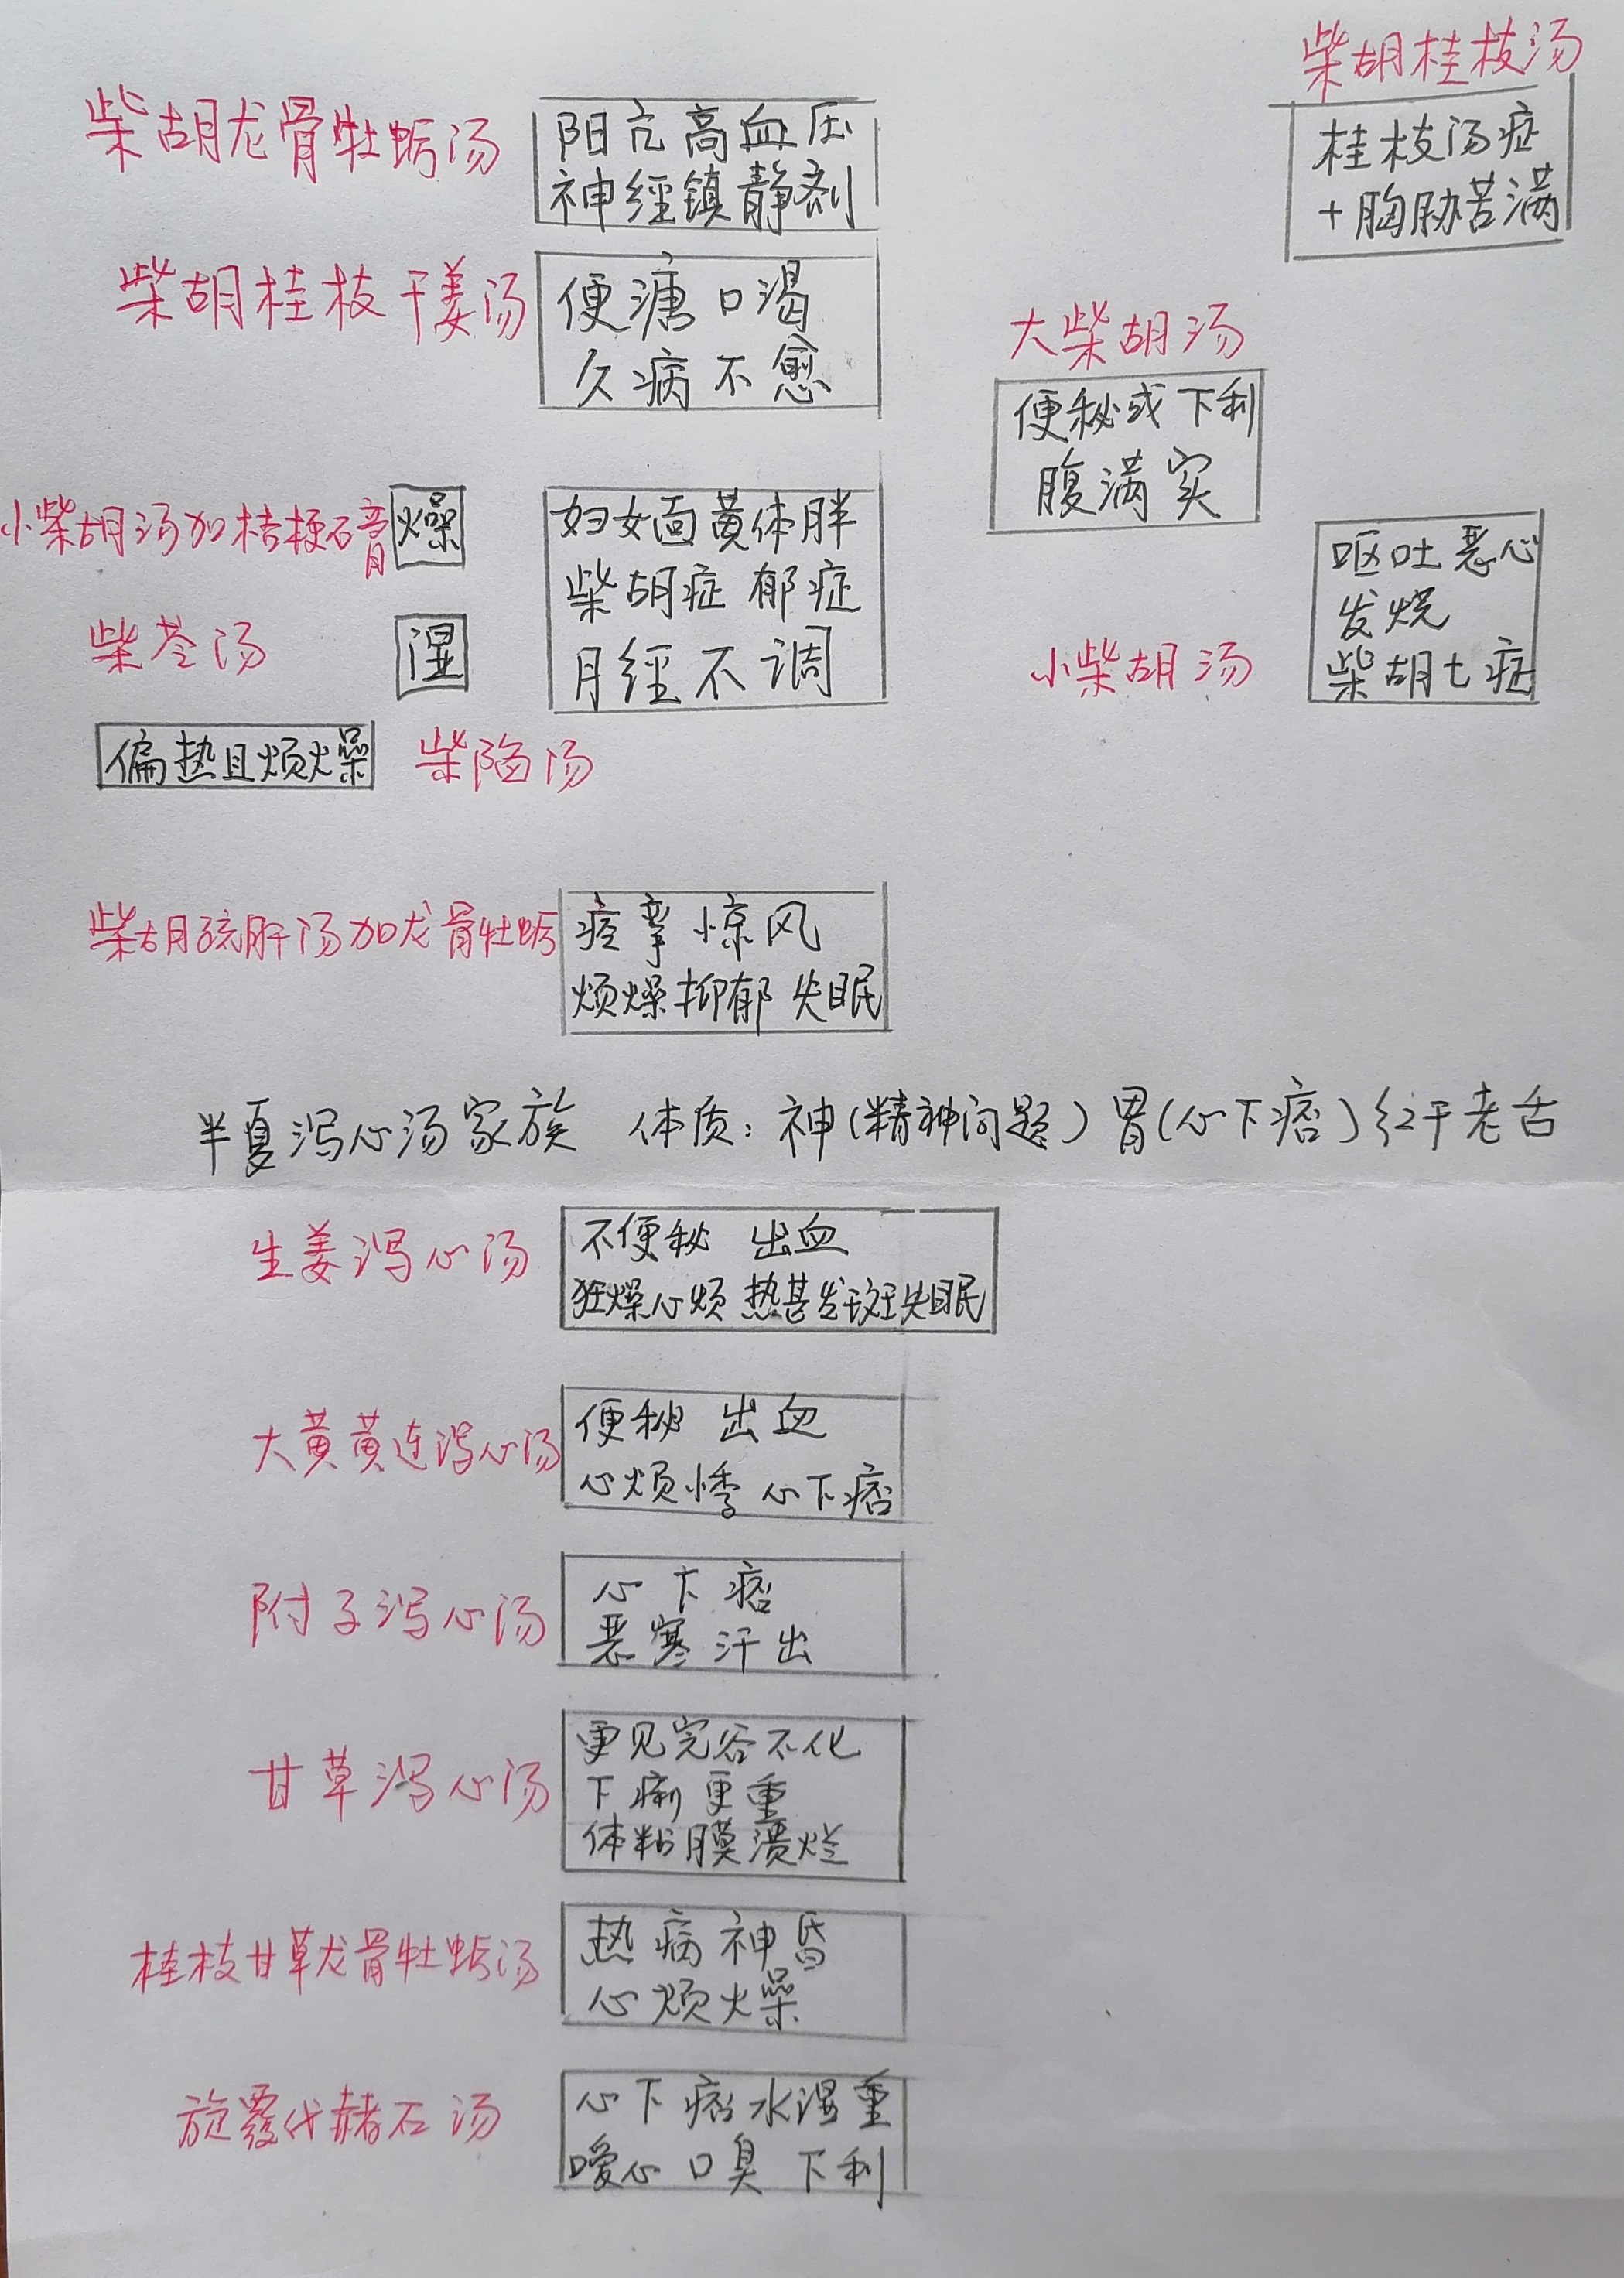 柴胡桂枝汤
桂枝汤症
+胸胁苦满
柴胡龙骨牡蛎汤
阳亢高血压
神经镇静剂
柴胡桂枝干姜汤
便溏口渴
久病不愈
大柴胡汤
便秘或下利
腹满实
小柴胡汤加桔梗石膏
燥
柴苓汤
湿
妇女面黄体胖
柴胡症 郁症
月经不调
小柴胡汤
呕吐恶心
发烧
柴胡七症
偏热且烦燥
柴陷汤
柴胡疏肝汤加龙骨牡蛎
痉挛 惊风
烦燥抑郁 失眠
半夏泻心汤家族 体质：神（精神问题）胃（心下痞）红干老舌
生姜泻心汤
不便秘 出血
狂燥心烦 热甚发斑失眠
大黄黄连泻心汤
便秘 出血
心烦悸 心下痞
附子泻心汤
心下痞
恶寒汗出
甘草泻心汤
更见完谷不化
下痢更重
体粘膜溃烂
桂枝甘草龙骨牡蛎汤
热病神昏
心烦燥
旋覆代赭石汤
心下痞水湿重
嗳心 口臭 下利